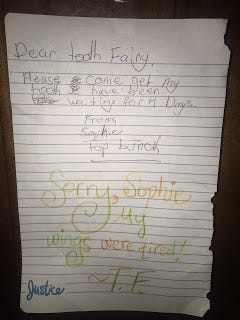 Dear tooth Fairy,
Please Come get my
tooth I have been
waiting for 4 Days.
From
Sophie
Top bunck
Sorry, Sophie
My
wings were tired!
~T.F
Justice